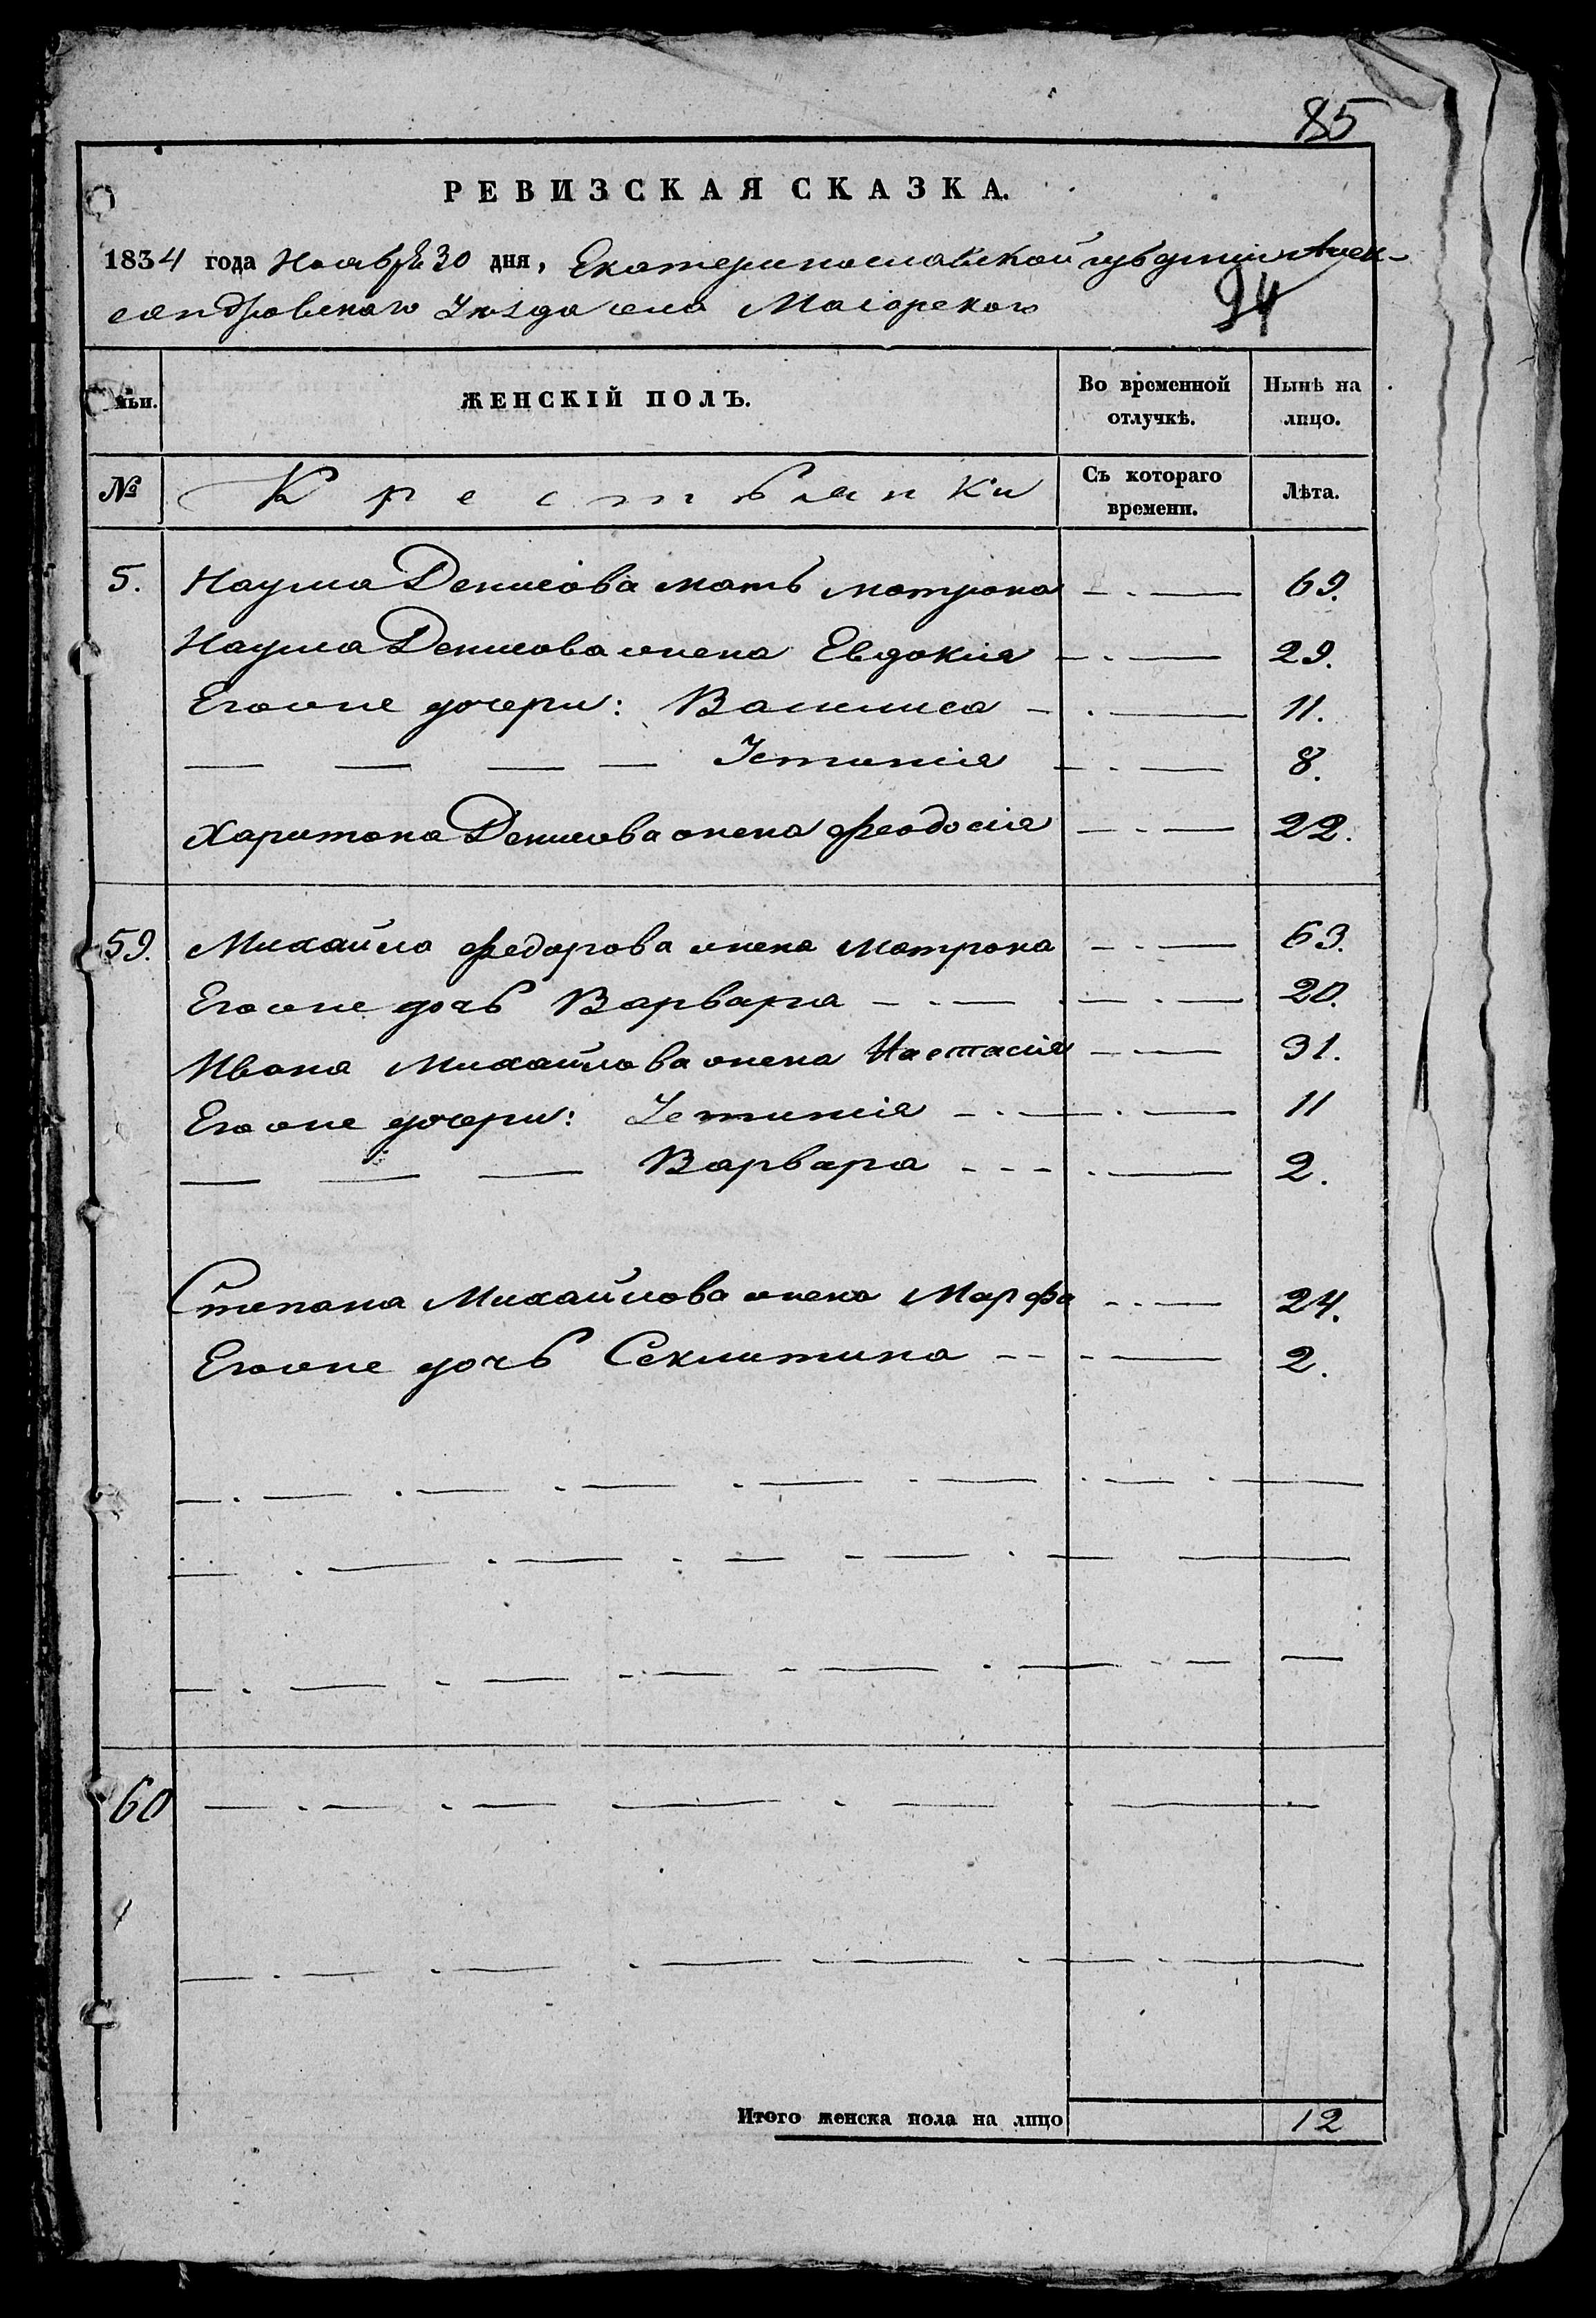 85
РЕВИЗСКАЯ СКАЗКА.
1834 года Ноября 30 дня, Екатеринославской губернии Алек-
сандровскаго Уезда села Маіорскаго
94
мьи. ЖЕНСКІЙ ПОЛЪ. Во временной отлучкѣ. Нынѣ на лицо.
№ Крестьянки Съ котораго времени. Лѣта.
5. Наума Денисова мать матрона — . — 69.
Наума Денисова жена Евдокия — . — 29.
Егоже дочери: Василиса — . — 11.
— — — — Устинія — . — 8.
Харитона Денисова жена Феодосія — . — 22.
59. Михайла Федорова жена матрона — . — 63.
Егоже дочь Варвара — . — . — . — 20.
Ивана Михайлова жена Настасія — . — 31.
Егоже дочери: Устинія — . — . — 11
— — — Варвара - - - . — 2.
Степана Михайлова жена Марфа - . — 24.
Егоже дочь Секлитина - - . — 2.
60
Итого женска пола на лицо 12